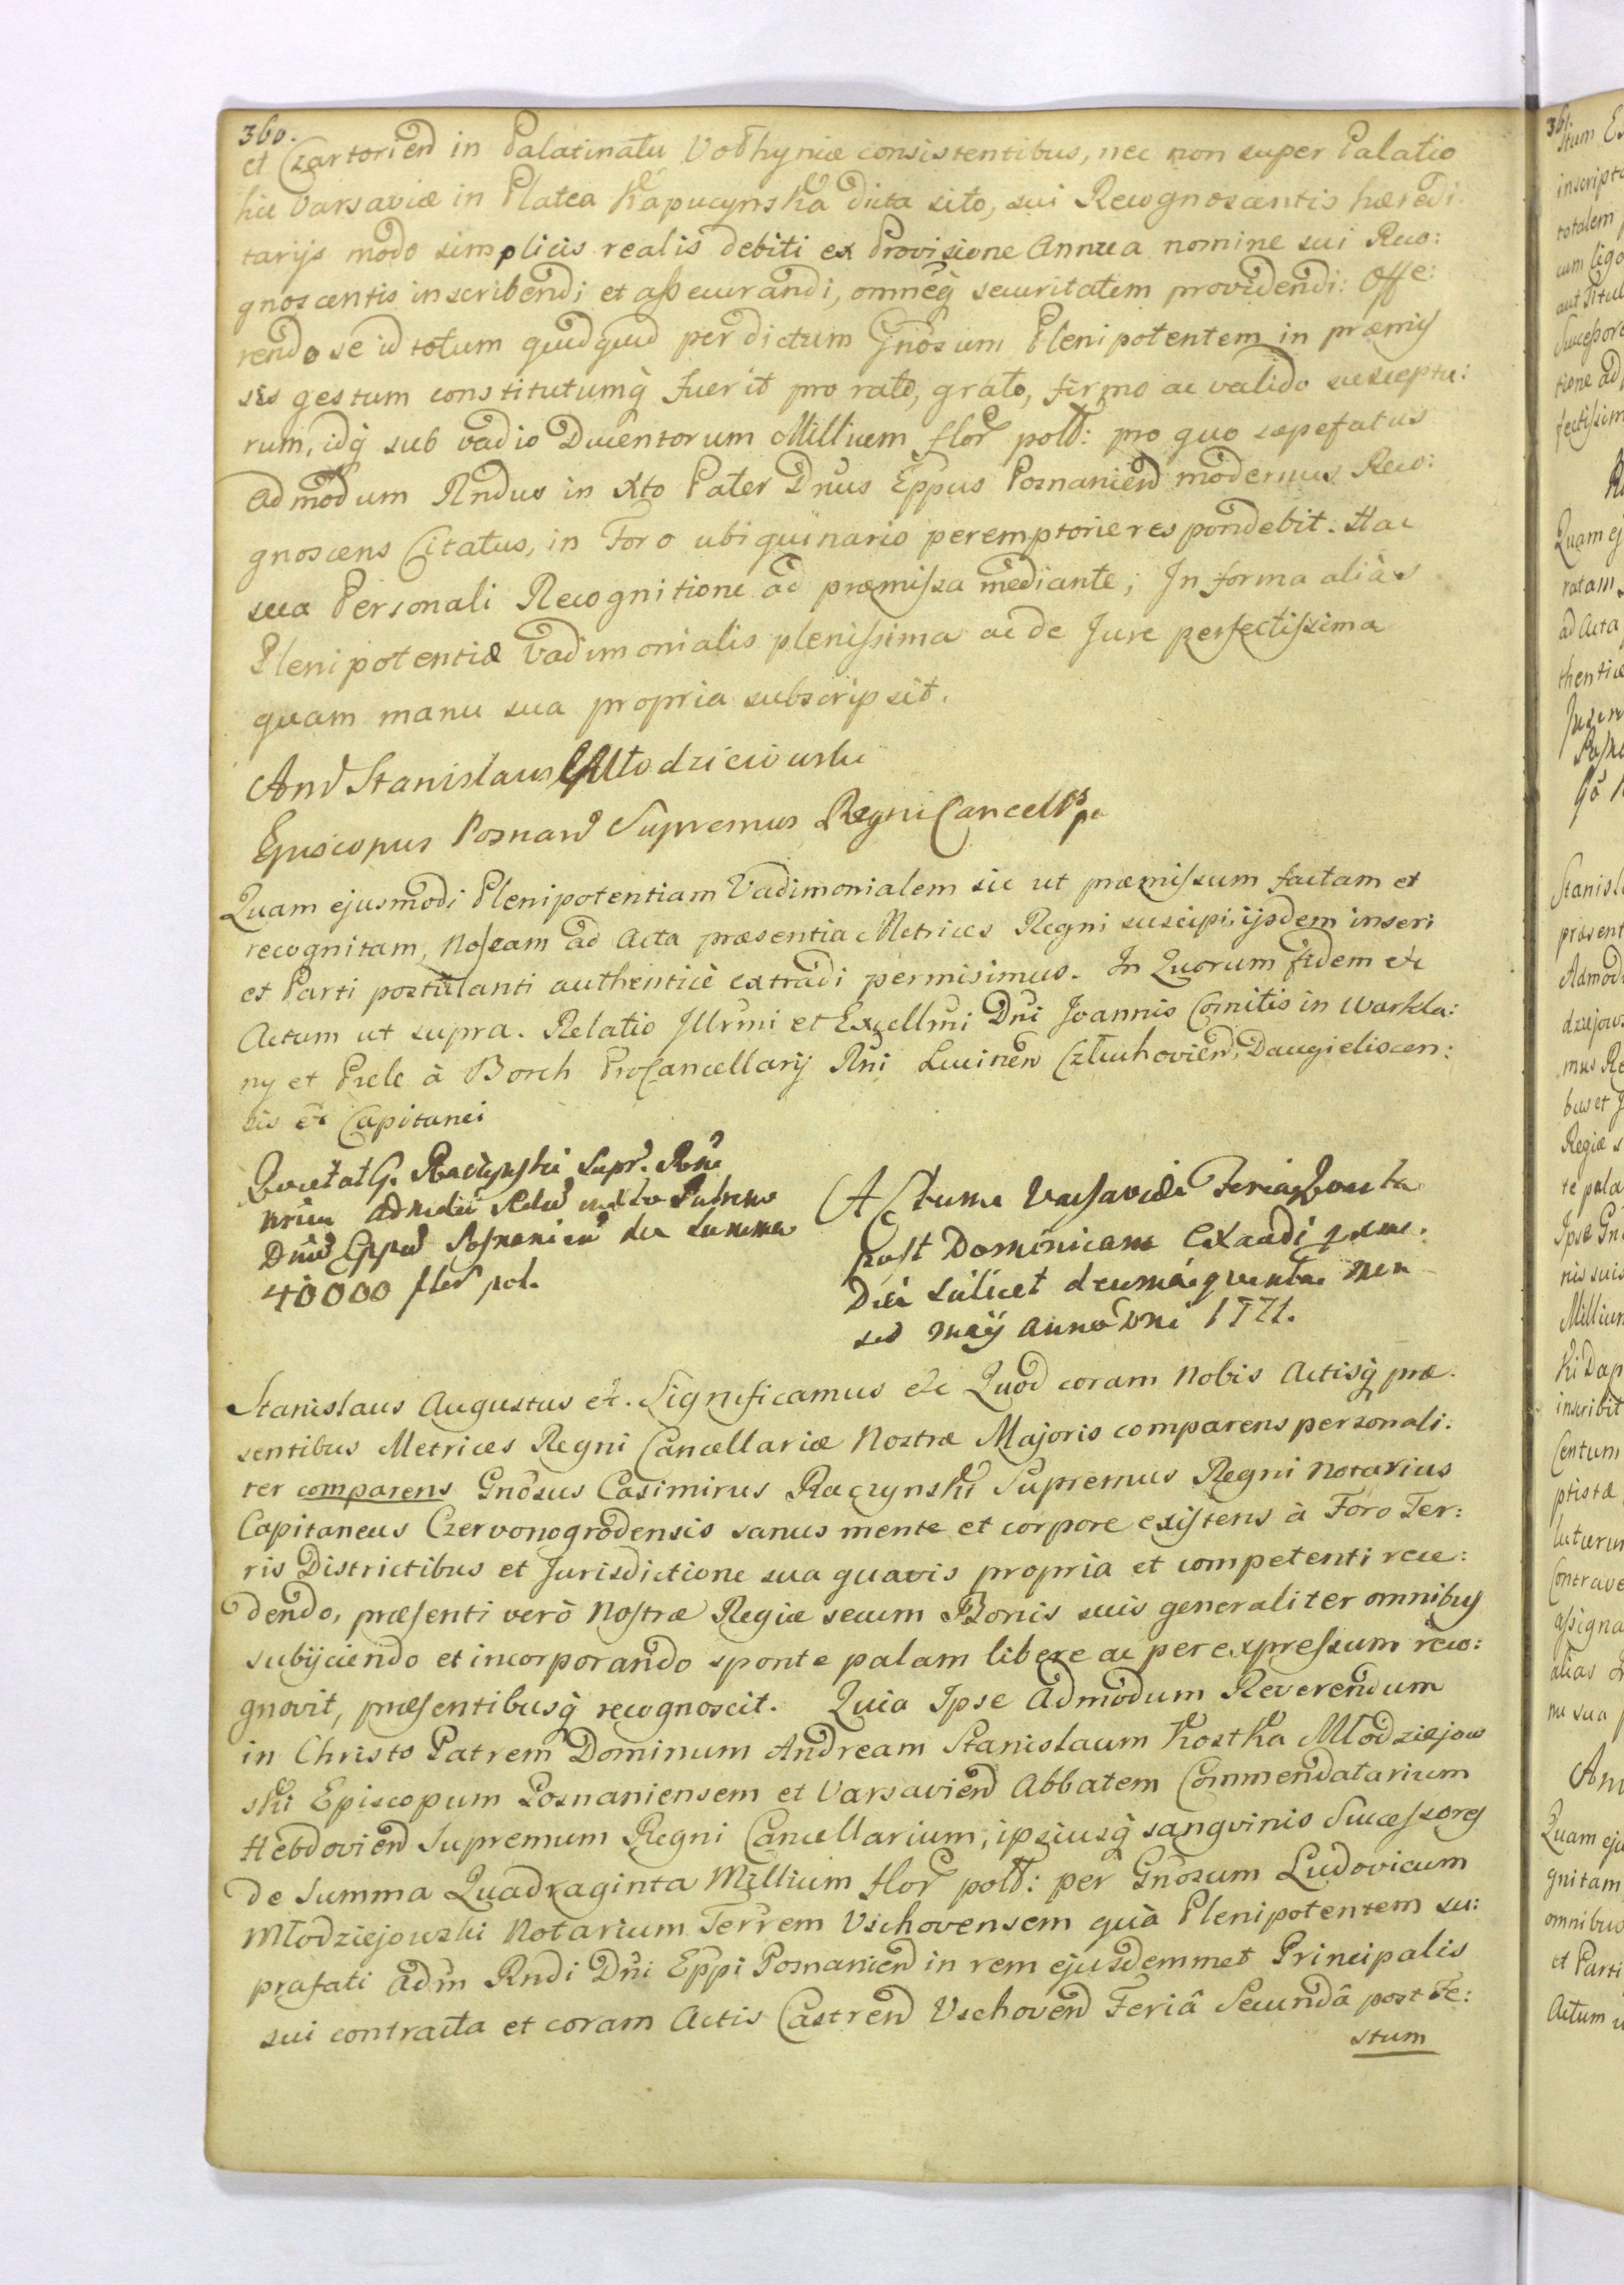 360.
et Czartorien in Palatinatu Volhyniæ consistentibus, nec non super Palatio
hic Varsaviæ in Platea Kapucynska dicta sito, sui Recognoscentis hæredi
tarijs modo simplicis realis debiti ex Provisione Annua nomine sui Reco:
gnoscentis inscribendi et assecurandi, omneq̃ securitatem providendi: Offe:
rendo se id totum quidquid per dictum Gnosum Plenipotentem in præmis
sis gestum constitutumq̃ fuerit pro rato, grato, firmo ac valido susceptu:
rum, idq̃ sub vadio Ducentorum Millium flor pold: pro quo sæpefatus
Admodum Rndus in Xto Pater Dnus Eppus Posnanien modernus Reco:
gnoscens Citatus, in Foro ubiquinario peremptorie respondebit. Hac
sua Personali Recognitione ad præmissa mediante; In forma aliàs
Plenipotentiæ Vadimonialis plenissima ac de Jure perfectissima
quam manu sua propria subscripsit.
And Stanislaus Młodzieiowski
Episcopus Posnan Supremus Regni Cancells
Quam ejusmodi Plenipotentiam Vadimonialem sic ut præmissum factam et
recognitam, Nos eam ad Acta præsentia Metrices Regni suscipi, ijsdem inseri
et Parti postulanti authenticè extradi permisimus. In Quorum fidem etc
Actum ut supra. Relatio Illrmi et Excellmi Dni Joannis Comitis in Warkla:
ny et Prele à Borch ProCancellarij Rni Lucinen Człuchovien, Daugieliscen:
sis etc Capitanei
Quietat G. Raczynski Supr. Rni
Nrius Admdu Rndu in Xto Patrem
Dnu Eppu Posnanien de Summa
40000 flor pol.
Actum Varsaviæ Feria Quarta
post Dominicam Exaudi proxima
Die scilicet decima quinta Men
sis Maij Anno Dni 1771.
Stanislaus Augustus etc. Significamus etc Quod coram Nobis Actisq̃ præ
sentibus Metrices Regni Cancellariæ Nostræ Majoris comparens personali:
ter comparens Gnosus Casimirus Raczynski Supremus Regni Notarius
Capitaneus Czervonogrodensis sanus mente et corpore existens à Foro Ter:
ris Districtibus et Jurisdictione sua quavis propria et competenti rece:
dendo, præsenti verò Nostræ Regiæ secum Bonis suis generaliter omnibus
subijciendo et incorporando sponte palam libere ac per expressum reco:
gnovit, præsentibusq̃ recognoscit. Quia Ipse Admodum Reverendum
in Christo Patrem Dominum Andream Stanislaum Kostka Młodziejow
ski Episcopum Posnaniensem et Varsavien Abbatem Commendatarium
Hebdovien Supremum Regni Cancellarium, ipsiusq̃ sangvinis Successores
de Summa Quadraginta Millium flor pold: per Gnosum Ludovicum
Młodziejowski Notarium Terrem Vschovensem quà Plenipotentem su:
prafati Adm Rndi Dni Eppi Posnanien in rem ejusdemmet Principalis
sui contracta et coram Actis Castren Vschoven Feriâ Secundâ post Fe:
stum
361.